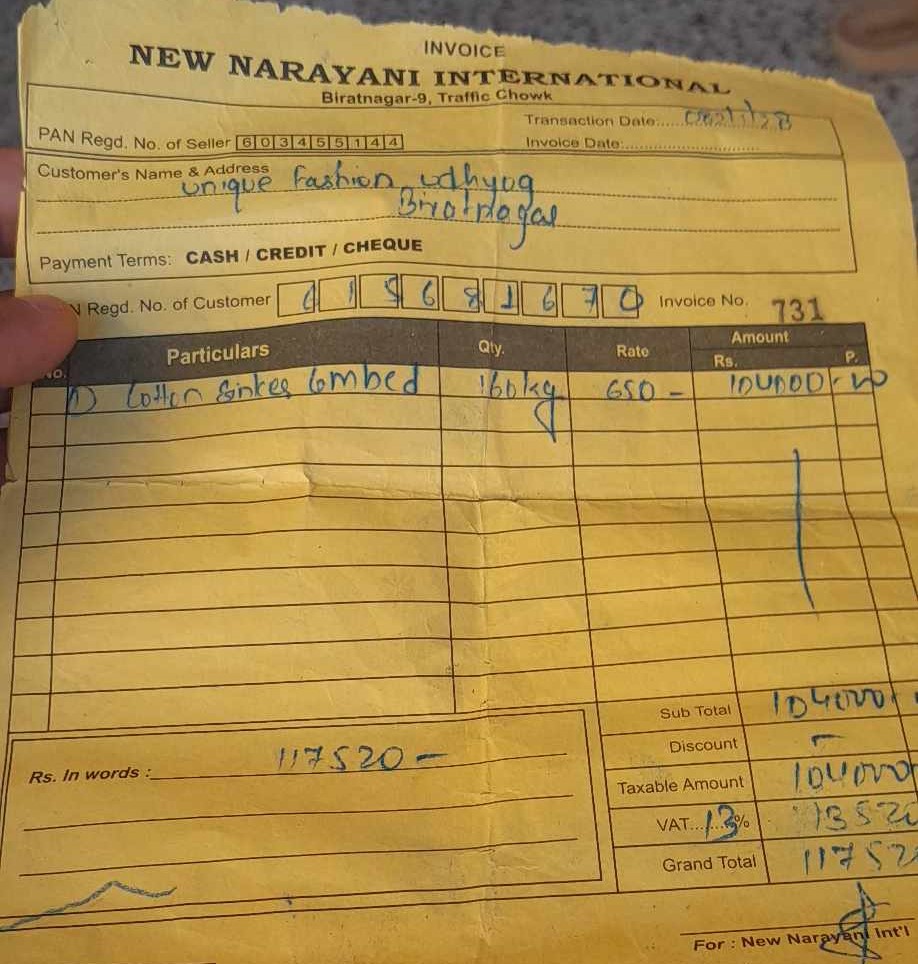 INVOICE
NEW NARAYANI INTERNATIONAL
Biratnagar-9, Traffic Chowk
PAN Regd. No. of Seller 603455144
Transaction Date:
Invoice Date:
Customer's Name & Address
unique Fashion udhyog
Biratnagar
Payment Terms: CASH / CREDIT / CHEQUE
N Regd. No. of Customer 615681670 Invoice No. 731
No. Particulars Qty. Rate Amount Rs. P.
1) Cotton Combed 160 kg 650 - 104000
Sub Total 104000
Discount -
Rs. In words : 117520 -
Taxable Amount 104000
VAT...13% 13520
Grand Total 11752
For : New Narayani Int'l